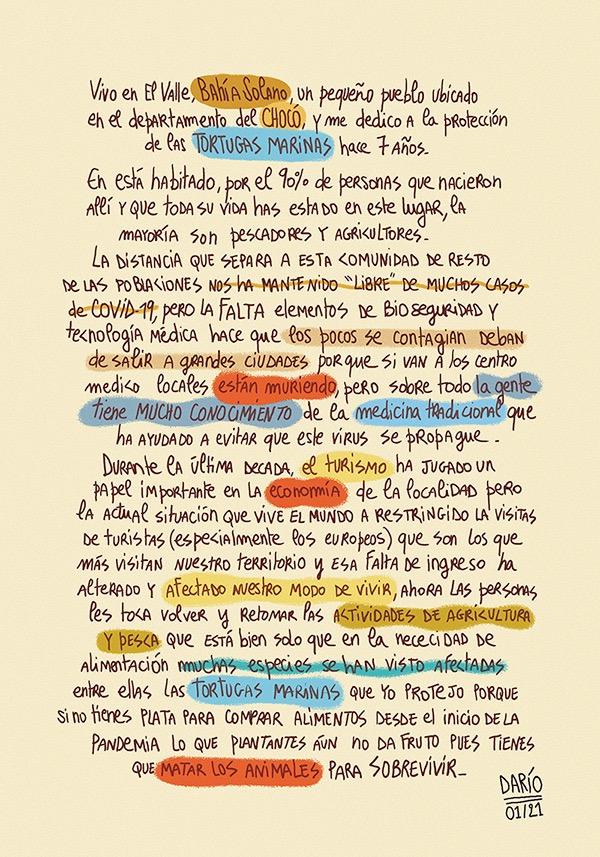 Vivo en El Valle, Bahía Solano, un pequeño pueblo ubicado
en el departamento del CHOCÓ, y me dedico a la protección
de las TORTUGAS MARINAS hace 7 años.
En está habitado, por el 90% de personas que nacieron
allí y que toda su vida has estado en este lugar, la
mayoría son pescadores y agricultores.
La distancia que separa a esta comunidad de resto
de las poblaciones nos ha mantenido "libre" de muchos casos
de COVID-19, pero la FALTA elementos de Bioseguridad y
tecnología médica hace que los pocos se contagian deban
de salir a grandes ciudades porque si van a los centro
medico locales están muriendo, pero sobre todo la gente
tiene MUCHO CONOCIMIENTO de la medicina tradicional que
ha ayudado a evitar que este virus se propague.
Durante la última decada, el turismo ha jugado un
papel importante en la economía de la localidad pero
la actual situación que vive el mundo a restringido la visitas
de turistas (especialmente los europeos) que son los que
más visitan nuestro territorio y esa falta de ingreso ha
alterado y afectado nuestro modo de vivir, ahora las personas
les toca volver y retomar las actividades de agricultura
y pesca que está bien solo que en la nececidad de
alimentación muchas especies se han visto afectadas
entre ellas las TORTUGAS MARINAS que yo protejo porque
si no tienes plata para comprar alimentos desde el inicio de la
pandemia lo que plantantes aún no da fruto pues tienes
que MATAR LOS ANIMALES para SOBREVIVIR.
DARÍO
01/21